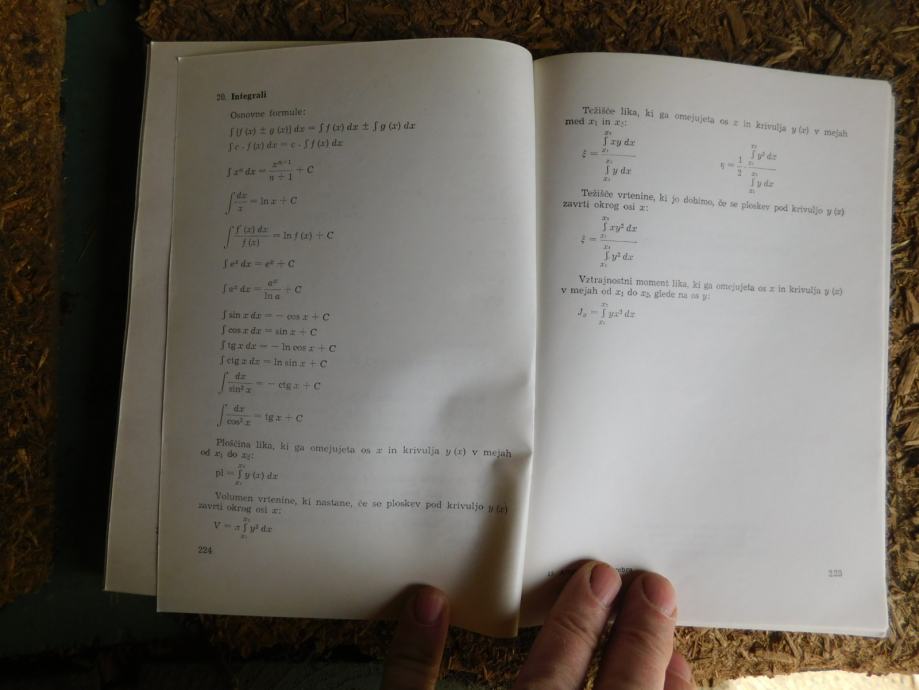 20. Integrali
Osnovne formule:
∫ [f (x) ± g (x)] dx = ∫ f (x) dx ± ∫ g (x) dx
∫ c · f (x) dx = c · ∫ f (x) dx
∫ xⁿ dx = xⁿ⁺¹ / (n + 1) + C
∫ dx / x = ln x + C
∫ f′ (x) dx / f (x) = ln f (x) + C
∫ eˣ dx = eˣ + C
∫ aˣ dx = aˣ / ln a + C
∫ sin x dx = − cos x + C
∫ cos x dx = sin x + C
∫ tg x dx = − ln cos x + C
∫ ctg x dx = ln sin x + C
∫ dx / sin² x = − ctg x + C
∫ dx / cos² x = tg x + C
Ploščina lika, ki ga omejujeta os x in krivulja y (x) v mejah
od x₁ do x₂:
pl = ∫ₓ₁ˣ² y (x) dx
Volumen vrtenine, ki nastane, če se ploskev pod krivuljo y (x)
zavrti okrog osi x:
V = π ∫ₓ₁ˣ² y² dx
224
Težišče lika, ki ga omejujeta os x in krivulja y (x) v mejah
med x₁ in x₂:
ξ = ∫ₓ₁ˣ² xy dx / ∫ₓ₁ˣ² y dx η = 1/2 · ∫ₓ₁ˣ² y² dx / ∫ₓ₁ˣ² y dx
Težišče vrtenine, ki jo dobimo, če se ploskev pod krivuljo y (x)
zavrti okrog osi x:
ξ = ∫ₓ₁ˣ² xy² dx / ∫ₓ₁ˣ² y² dx
Vztrajnostni moment lika, ki ga omejujeta os x in krivulja y (x)
v mejah od x₁ do x₂, glede na os y:
Jᵧ = ∫ₓ₁ˣ² yx² dx